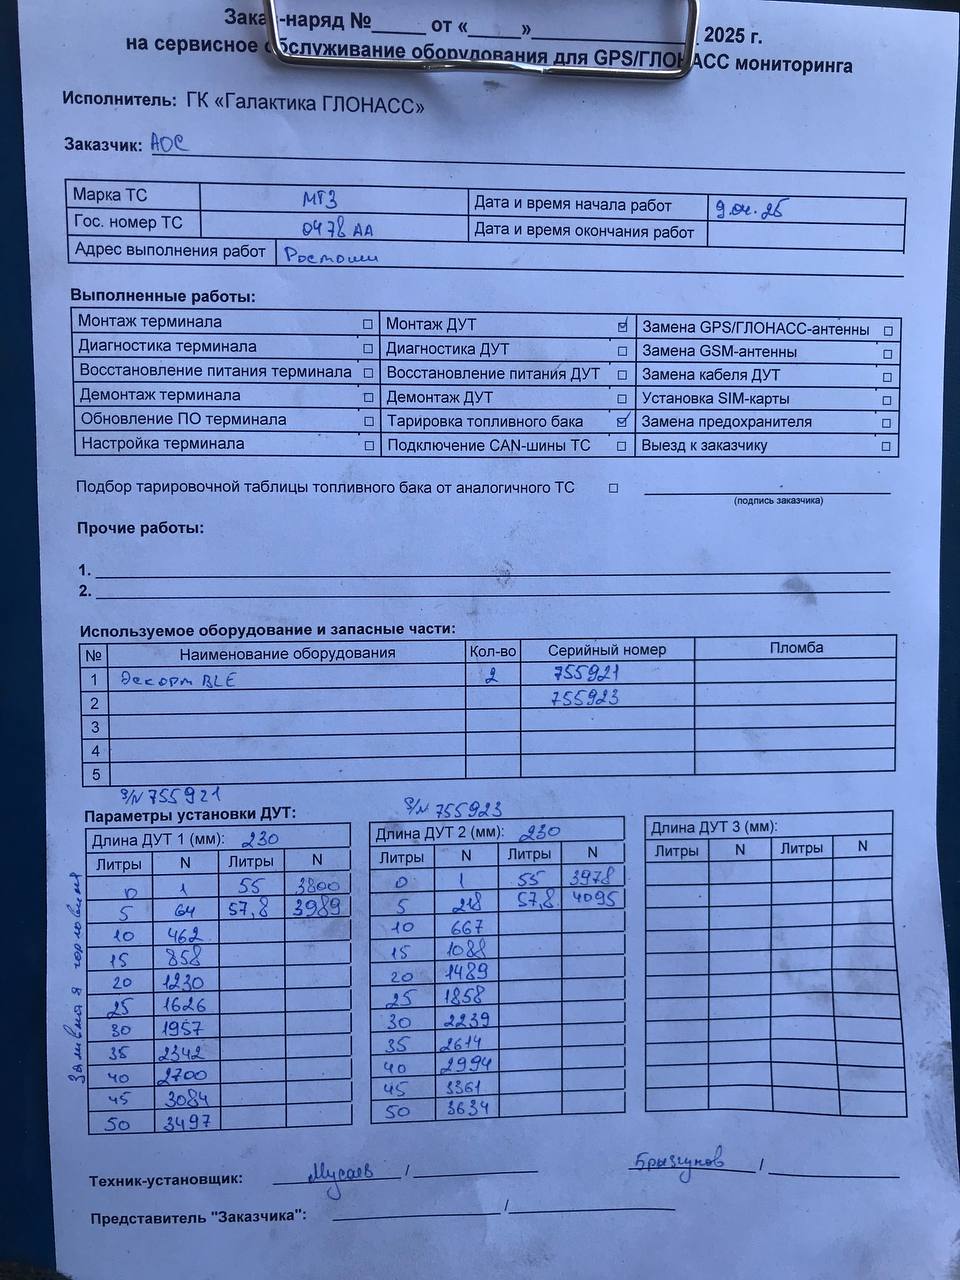 Заказ-наряд №_____ от «_____»_______________ 2025 г.
на сервисное обслуживание оборудования для GPS/ГЛОНАСС мониторинга
Исполнитель: ГК «Галактика ГЛОНАСС»
Заказчик: АОС
Марка ТС МТЗ Дата и время начала работ 9.04.25
Гос. номер ТС 0478 АА Дата и время окончания работ
Адрес выполнения работ Ростоши
Выполненные работы:
Монтаж терминала ☐ Монтаж ДУТ ☑ Замена GPS/ГЛОНАСС-антенны ☐
Диагностика терминала ☐ Диагностика ДУТ ☐ Замена GSM-антенны ☐
Восстановление питания терминала ☐ Восстановление питания ДУТ ☐ Замена кабеля ДУТ ☐
Демонтаж терминала ☐ Демонтаж ДУТ ☐ Установка SIM-карты ☐
Обновление ПО терминала ☐ Тарировка топливного бака ☑ Замена предохранителя ☐
Настройка терминала ☐ Подключение CAN-шины ТС ☐ Выезд к заказчику ☐
Подбор тарировочной таблицы топливного бака от аналогичного ТС ☐
(подпись заказчика)
Прочие работы:
1.
2.
Используемое оборудование и запасные части:
№ Наименование оборудования Кол-во Серийный номер Пломба
1 Эскорт BLE 2 755921
2 755923
3
4
5
S/N 755921 S/N 755923
Параметры установки ДУТ:
Длина ДУТ 1 (мм): 230 Длина ДУТ 2 (мм): 230 Длина ДУТ 3 (мм):
Литры N Литры N Литры N Литры N Литры N Литры N
0 1 55 3800 0 1 55 3978
5 64 57,8 3989 5 218 57,8 4095
10 462 10 667
15 858 15 1088
20 1230 20 1489
25 1626 25 1858
30 1957 30 2239
35 2342 35 2614
40 2700 40 2994
45 3084 45 3361
50 3497 50 3634
Заливная горловина
Техник-установщик: Мусаев / Брызгунов /
Представитель "Заказчика": /